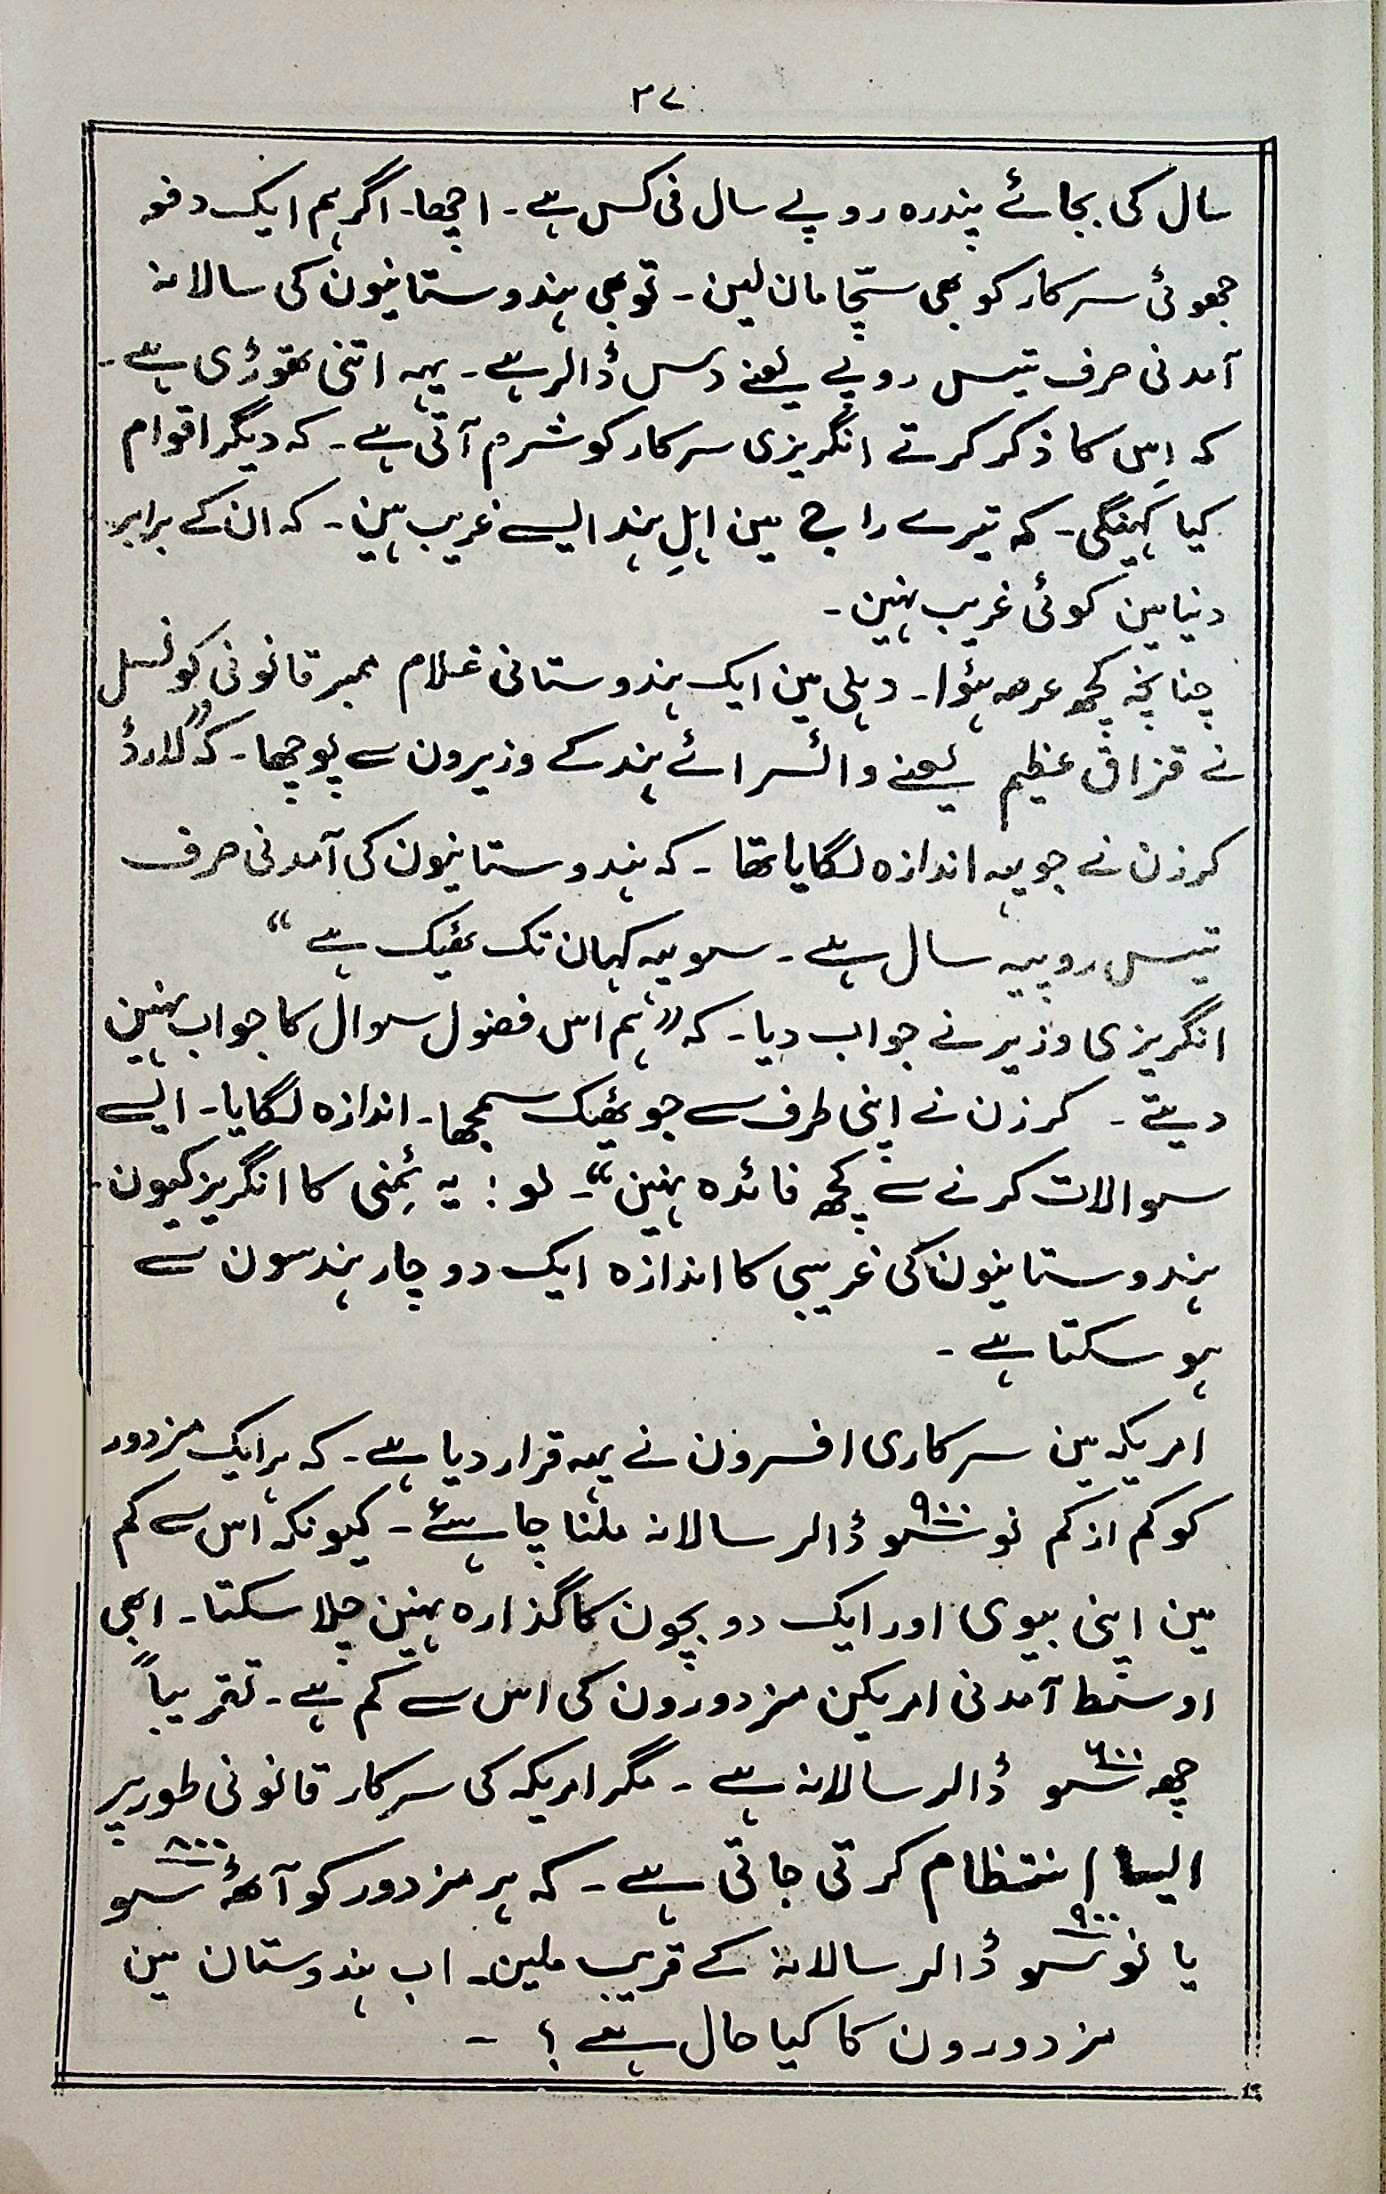 ۳۷
سال کی بجائے پندرہ روپے سال فی کس ہے۔ اچھا۔ اگر ہم ایک دفعہ
جھوٹی سرکار کو بھی سچّا مان لین۔ تو بھی ہندوستانیون کی سالانہ
آمدنی صرف تیس روپے یعنے دس ڈالر ہے۔ یہہ اتنی تھوڑی ہے۔
کہ اِس کا ذکر کرتے انگریزی سرکار کو شرم آتی ہے۔ کہ دیگر اقوام
کیا کہینگی۔ کہ تیرے راج مین اہلِ ہند ایسے غریب ہین۔ کہ ان کے برابر
دنیا مین کوئی غریب نہین۔
چنانچہ کچھ عرصہ ہئوا۔ دہلی مین ایک ہندوستانی غلام ممبر قانونی کونسل
نے قزاق عظیم یعنے وائسرائے ہند کے وزیرون سے پوچھا۔ کہ ”لارڈ
کرزن نے جو یہہ اندازہ لگایا تھا۔ کہ ہندوستانیون کی آمدنی صرف
تیس روپیہ سال ہے۔ سو یہ کہان تک ٹھیک ہے“
انگریزی وزیر نے جواب دیا۔ کہ ”ہم اس فضول سوال کا جواب نہین
دیتے۔ کرزن نے اپنی طرف سے جو ٹھیک سمجھا۔ اندازہ لگایا۔ ایسے
سوالات کرنے سے کچھ فائدہ نہین“۔ لو! یہ ٹمنی کا انگریز کیون۔
ہندوستانیون کی غریبی کا اندازہ ایک دو چار ہندسون سے
ہو سکتا ہے۔
امریکہ مین سرکاری افسرون نے یہہ قرار دیا ہے۔ کہ ہر ایک مزدور
کو کم از کم نو سو ۹۰۰ ڈالر سالانہ ملنا چاہئے۔ کیونکہ اس سے کم
مین اپنی بیوی اور ایک دو بچون کا گذارہ نہین چلا سکتا۔ ابھی
اوسط آمدنی امریکن مزدورون کی اس سے کم ہے۔ تقریباً
چھ سو ۶۰۰ ڈالر سالانہ ہے۔ مگر امریکہ کی سرکار قانونی طور پر
ایسا انتظام کرتی جاتی ہے۔ کہ ہر مزدور کو آٹھ سو ۸۰۰
یا نو سو ۹۰۰ ڈالر سالانہ کے قریب ملین۔ اب ہندوستان مین
مزدورون کا کیا حال ہے؟ ۔